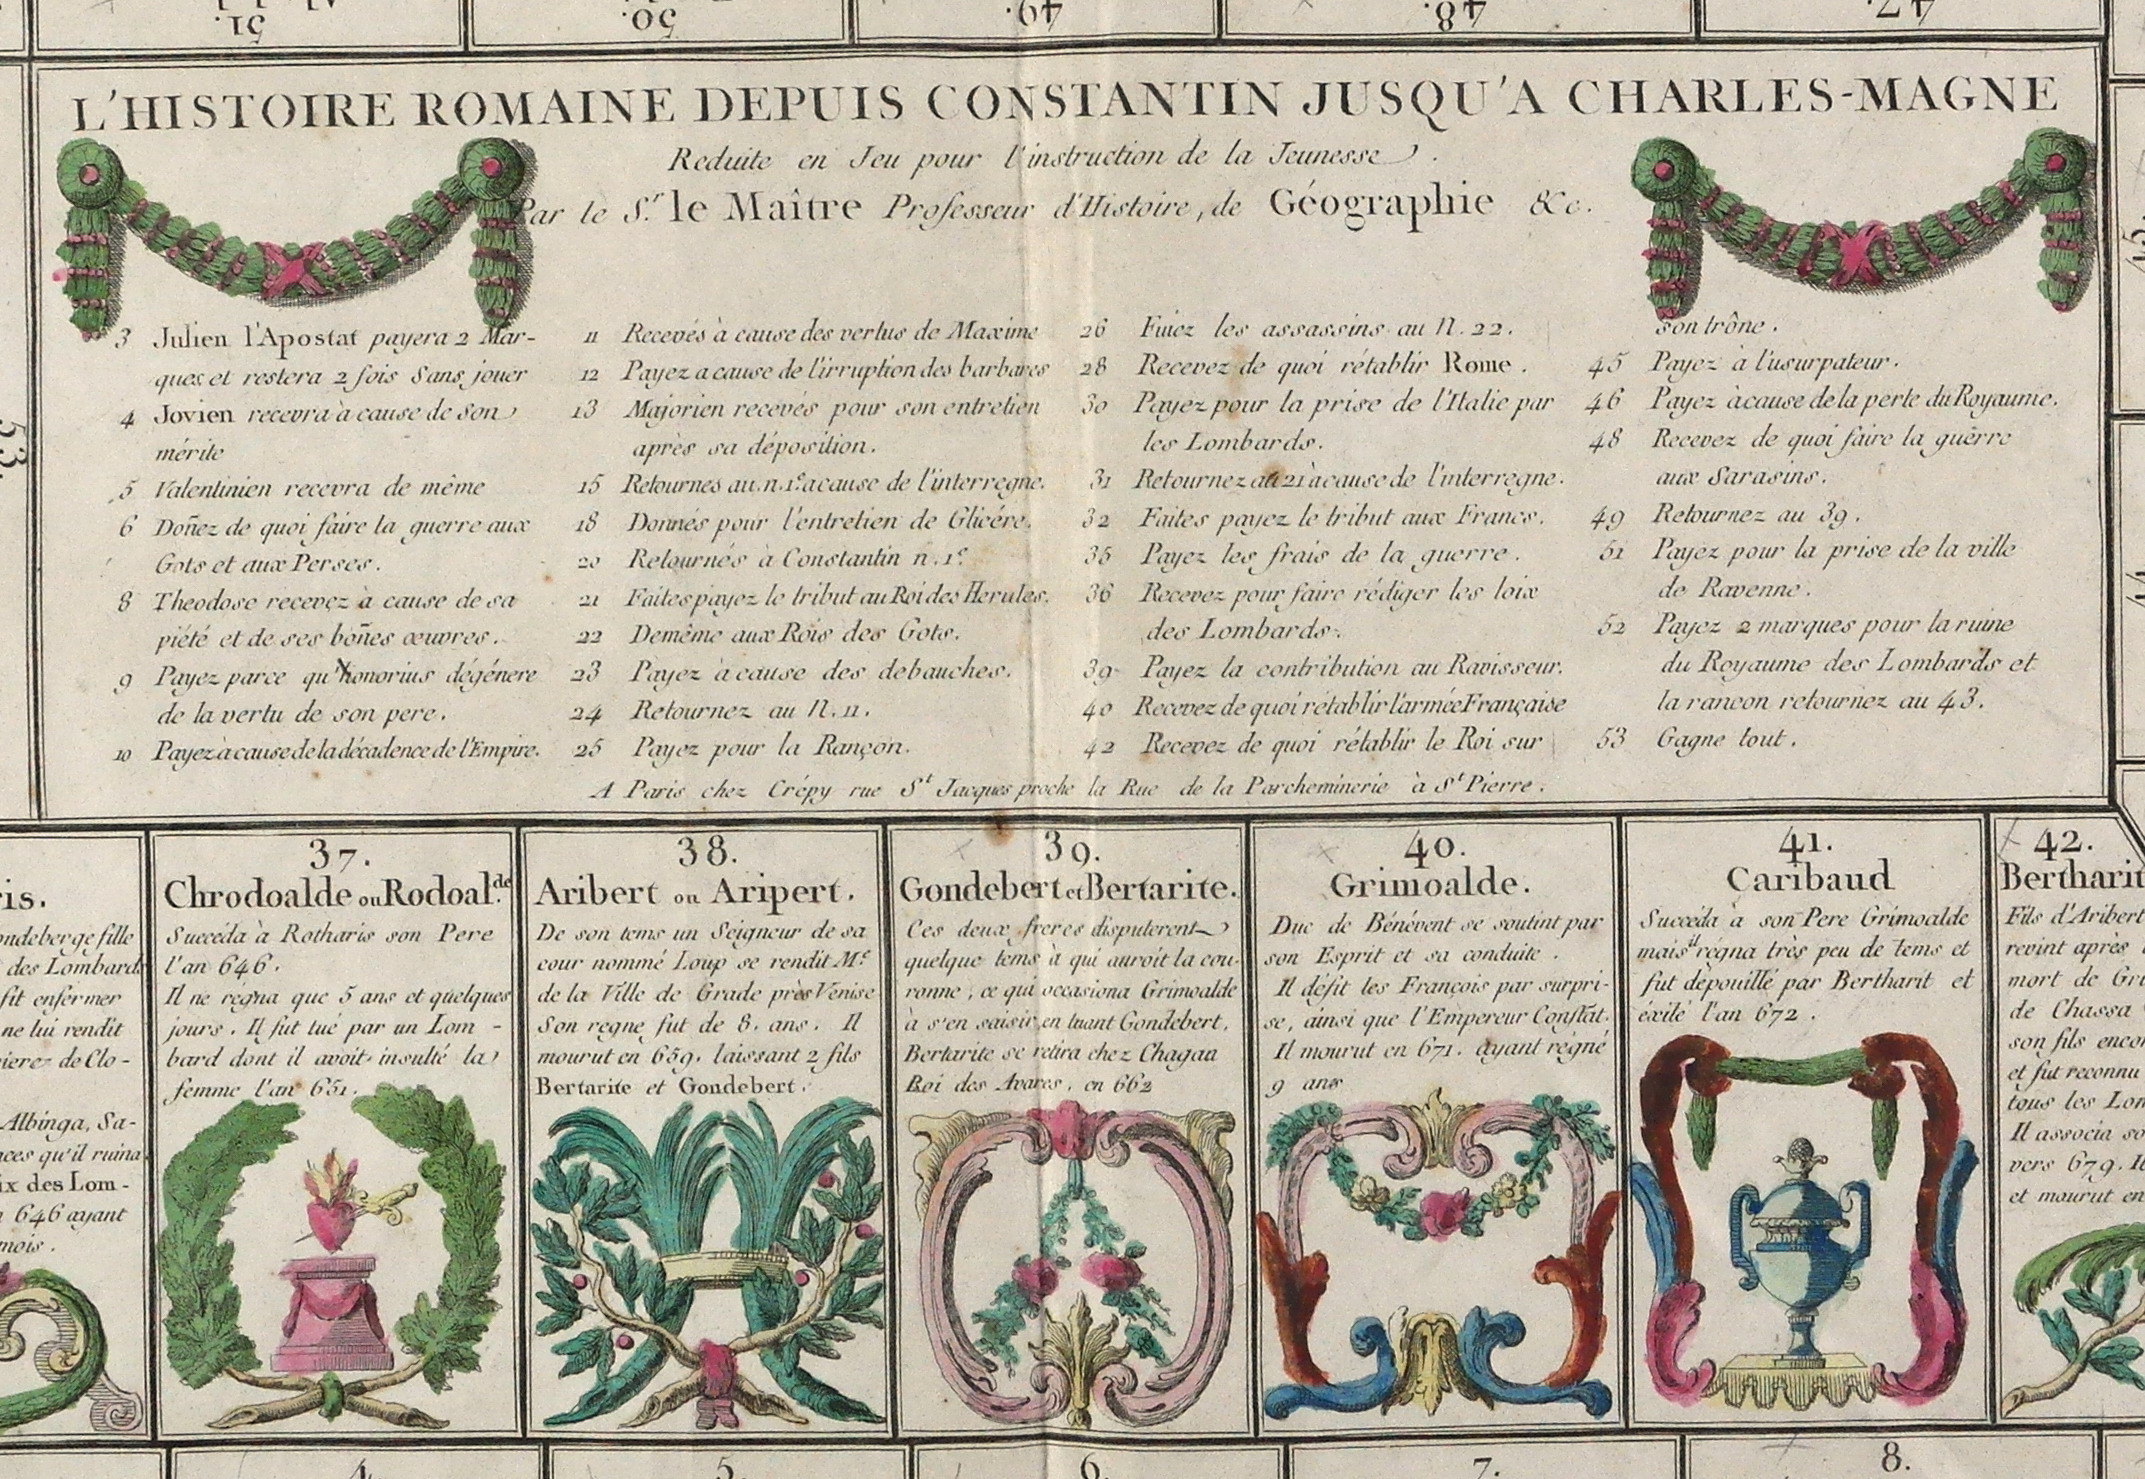 51.
50.
49.
48.
47.
L'HISTOIRE ROMAINE DEPUIS CONSTANTIN JUSQU'A CHARLES-MAGNE
Reduite en Jeu pour l'instruction de la Jeunesse.
Par le S.r le Maître Professeur d'Histoire, de Géographie &c.
3 Julien l'Apostat payera 2 Mar-
ques et restera 2 fois sans jouer
4 Jovien recevra à cause de son
mérite
5 Valentinien recevra de même
6 Doñez de quoi faire la guerre aux
Gots et aux Perses.
8 Theodose recevez à cause de sa
piété et de ses boñes œuvres.
9 Payez parce qu'honorius dégénere
de la vertu de son pere.
10 Payez à cause de la décadence de l'Empire.
11 Recevés à cause des vertus de Maxime
12 Payez a cause de l'irruption des barbares
13 Majorien recevés pour son entretien
après sa déposition.
15 Retournes au n.1.er a cause de l'interregne.
18 Donnés pour l'entretien de Glicére.
20 Retournés à Constantin n.1.er
21 Faites payez le tribut au Roi des Herules.
22 Demême aux Rois des Gots.
23 Payez à cause des debauches.
24 Retournez au N.11.
25 Payez pour la Rançon.
26 Fuiez les assassins au N.22.
28 Recevez de quoi rétablir Rome.
30 Payez pour la prise de l'Italie par
les Lombards.
31 Retournez au 21 à cause de l'interregne.
32 Faites payez le tribut aux Francs.
35 Payez les frais de la guerre.
36 Recevez pour faire rédiger les loix
des Lombards.
39 Payez la contribution au Ravisseur.
40 Recevez de quoi rétablir l'armée Française
42 Recevez de quoi rétablir le Roi sur
son trône.
45 Payez à l'usurpateur.
46 Payez à cause de la perte du Royaume.
48 Recevez de quoi faire la guêrre
aux Sarasins.
49 Retournez au 39.
51 Payez pour la prise de la ville
de Ravenne.
52 Payez 2 marques pour la ruine
du Royaume des Lombards et
la rancon retournez au 43.
53 Gagne tout.
A Paris chez Crépy rue S.t Jacques proche la Rue de la Parcheminerie à S.t Pierre.
53.
is.
ondeberge fille
des Lombards
fit enfermer
ne lui rendit
de Clo-
Albinga, Sa-
ces qu'il ruina
ix des Lom-
646 ayant
mois.
37.
Chrodoalde ou Rodoal.de
Succéda à Rotharis son Pere
l'an 646.
Il ne regna que 5 ans et quelques
jours. Il fut tué par un Lom-
bard dont il avoit insulté la
femme l'an 651.
38.
Aribert ou Aripert.
De son tems un Seigneur de sa
cour nommé Loup se rendit M.e
de la Ville de Grade près Venise
Son regne fut de 8. ans. Il
mourut en 659. laissant 2 fils
Bertarite et Gondebert.
39.
Gondebert et Bertarite.
Ces deux freres disputerent
quelque tems à qui auroit la cou-
ronne, ce qui occasiona Grimoalde
à s'en saisir, en tuant Gondebert.
Bertarite se retira chez Chagan
Roi des Avares. en 662
40.
Grimoalde.
Duc de Bénévent se soutint par
son Esprit et sa conduite.
Il défit les François par surpri-
se, ainsi que l'Empereur Constat.
Il mourut en 671. ayant régné
9 ans
41.
Caribaud
Succéda à son Pere Grimoalde
mais il régna très peu de tems et
fut dépouillé par Bertharit et
éxilé l'an 672.
42.
Bertharit
Fils d'Aribert
revint après
mort de Gri
de Chassa
son fils enco
et fut reconnu
tous les Lom
Il associa so
vers 679. Il
et mourut en
4.
5.
6.
7.
8.